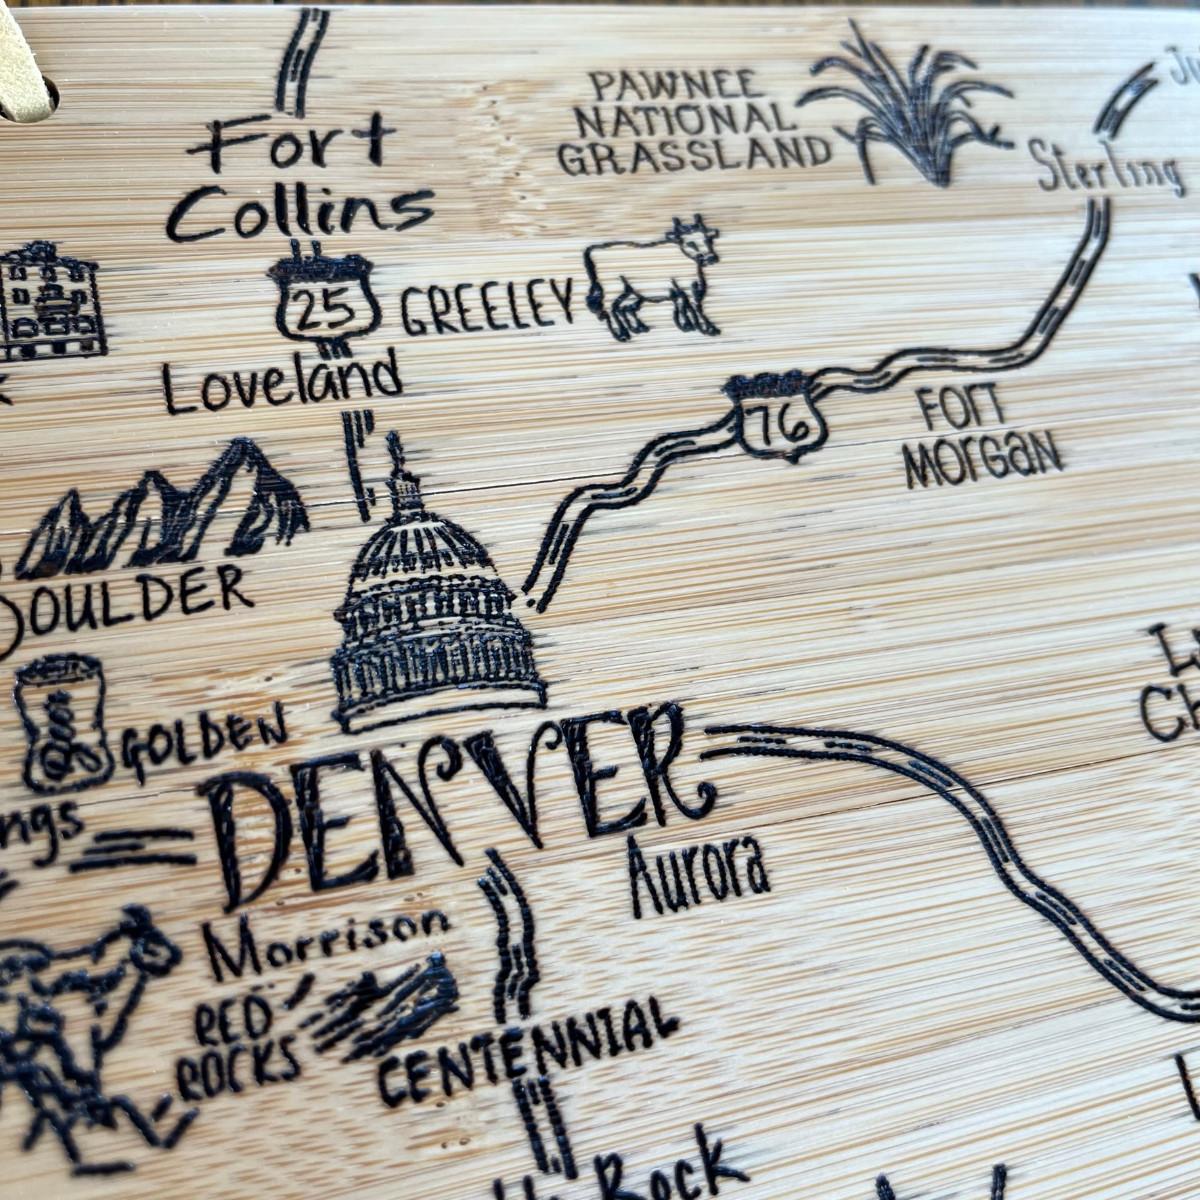 Fort
Collins
PAWNEE
NATIONAL
GRASSLAND
Sterling
25
GREELEY
Loveland
76
FORT
MORGAN
OULDER
GOLDEN
DENVER
ngs
Aurora
Morrison
RED
ROCKS
CENTENNIAL
Rock